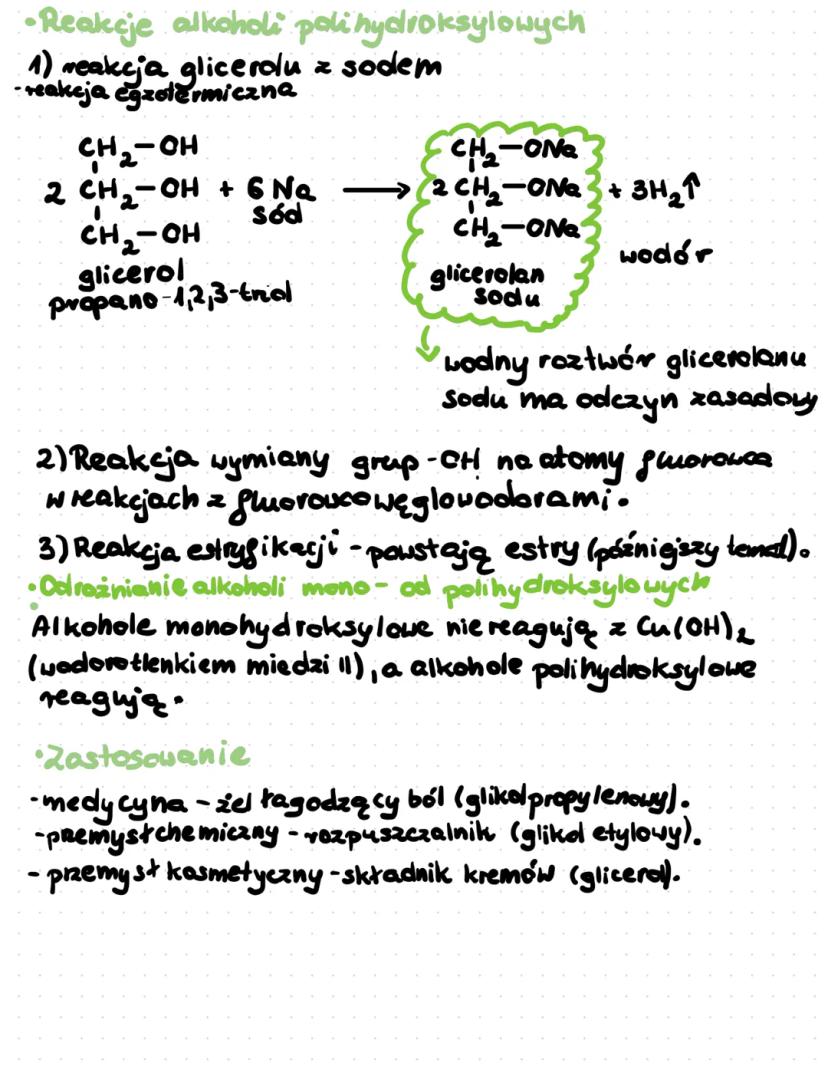 •Reakcje alkoholi polihydroksylowych
1) reakcja glicerolu z sodem
-reakcja egzotermiczna
CH2-OH
2 CH2-OH + 6 Na
sód
CH2-OH
glicerol
propano-1,2,3-triol
→
CH2-ONa
2 CH2-ONa + 3H2↑
CH2-ONa
wodór
glicerolan
sodu
wodny roztwór glicerolanu
sodu ma odczyn zasadowy
2) Reakcja wymiany grup -OH na atomy fluorowca
w reakcjach z fluorowcowęglowodorami.
3) Reakcja estryfikacji - powstają estry (późniejszy temat).
•Odróżnianie alkoholi mono- od polihydroksylowych
Alkohole monohydroksylowe nie reagują z Cu(OH)2
(wodorotlenkiem miedzi II), a alkohole polihydroksylowe
reagują.
•Zastosowanie
-medycyna - żel łagodzący ból (glikol propylenowy).
-przemysł chemiczny - rozpuszczalnik (glikol etylowy).
- przemysł kosmetyczny - składnik kremów (glicerol).